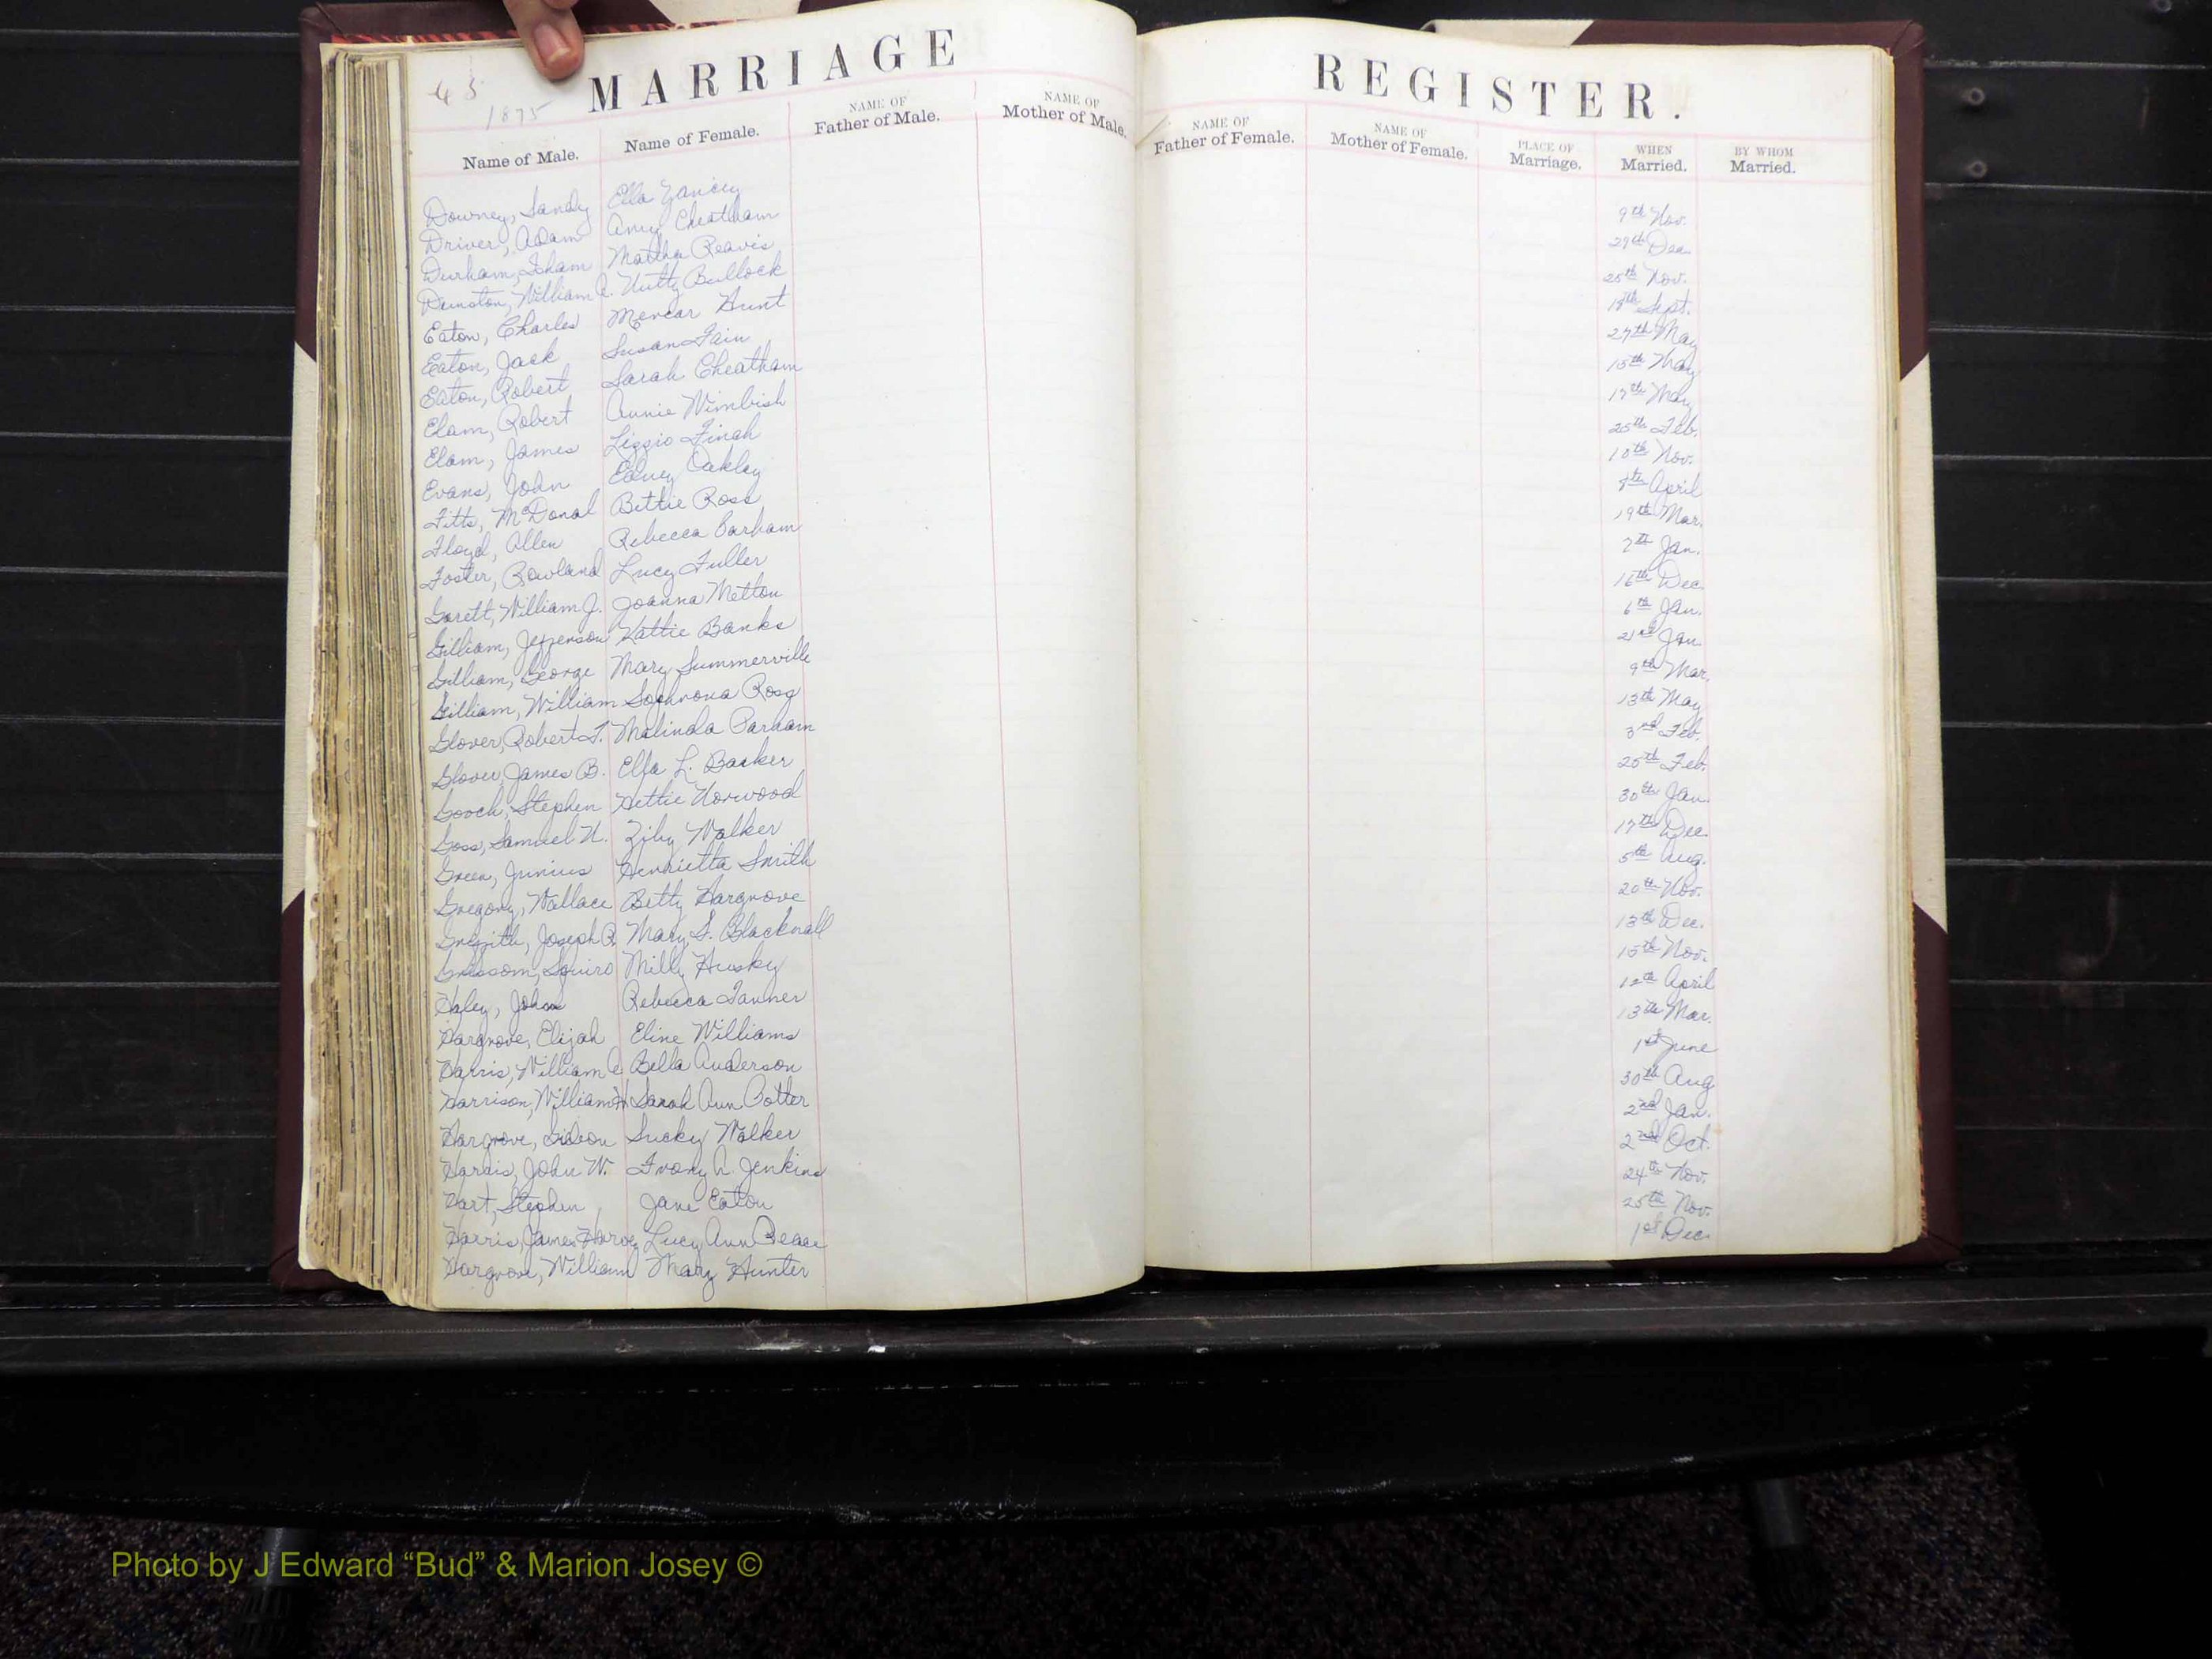 45
1875
MARRIAGE REGISTER.
Name of Male. Name of Female. NAME OF Father of Male. NAME OF Mother of Male. NAME OF Father of Female. NAME OF Mother of Female. PLACE OF Marriage. WHEN Married. BY WHOM Married.
Downey, Sandy Ella Yancey 9th Nov.
Driver, Adam Amy Cheatham 29th Dec.
Durham, Isham Martha Reavis 25th Nov.
Dunston, William A. Nutty Bullock Sept.
Eaton, Charles Mencar Hunt 27th May
Eaton, Jack Susan Fain 15th May
Eaton, Robert Sarah Cheatham 17th May
Elam, Robert Annie Wimbish 25th Feb.
Elam, James Lizzie Finch 10th Nov.
Evans, John Edney Oakley April
Fitts, McDonal Bettie Ross 19th Mar.
Floyd, Allen Rebecca Barham 7th Jan.
Foster, Rowland Lucy Fuller 16th Dec.
Garett, William J. Joanna Melton 6th Jan.
Gilliam, Jefferson Kattie Banks 21st Jan.
Gilliam, George Mary Summerville 9th Mar.
Gilliam, William Ross 13th May
Glover, Robert T. Malinda Parham 3rd Feb.
Glover, James B. Ella L. Barker 25th Feb.
Gooch, Stephen Hettie Norwood 30th Jan.
Goss, Samuel N. Ziby Walker 17th Dec.
Green, Junius Henrietta Smith 5th Aug.
Gregory, Wallace Betty Hargrove 20th Nov.
Griffith, Joseph R. Mary S. Blacknall 13th Dec.
Grissom, Squire Milly Husky 15th Nov.
Haley, John Rebecca Tanner 12th April
Hargrove, Elijah Eline Williams 13th Mar.
Harris, William A. Bella Anderson 1st June
Harrison, William H. Sarah Ann Potter 30th Aug.
Hargrove, Gideon Sucky Walker 2nd Jan.
Harris, John W. Ivony A. Jenkins 2nd Oct.
Hart, Stephen Jane Eaton 24th Nov.
Harris, James Harvey Lucy Ann Peace 25th Nov.
Hargrove, William Mary Hunter 1st Dec.
Photo by J Edward “Bud” & Marion Josey ©